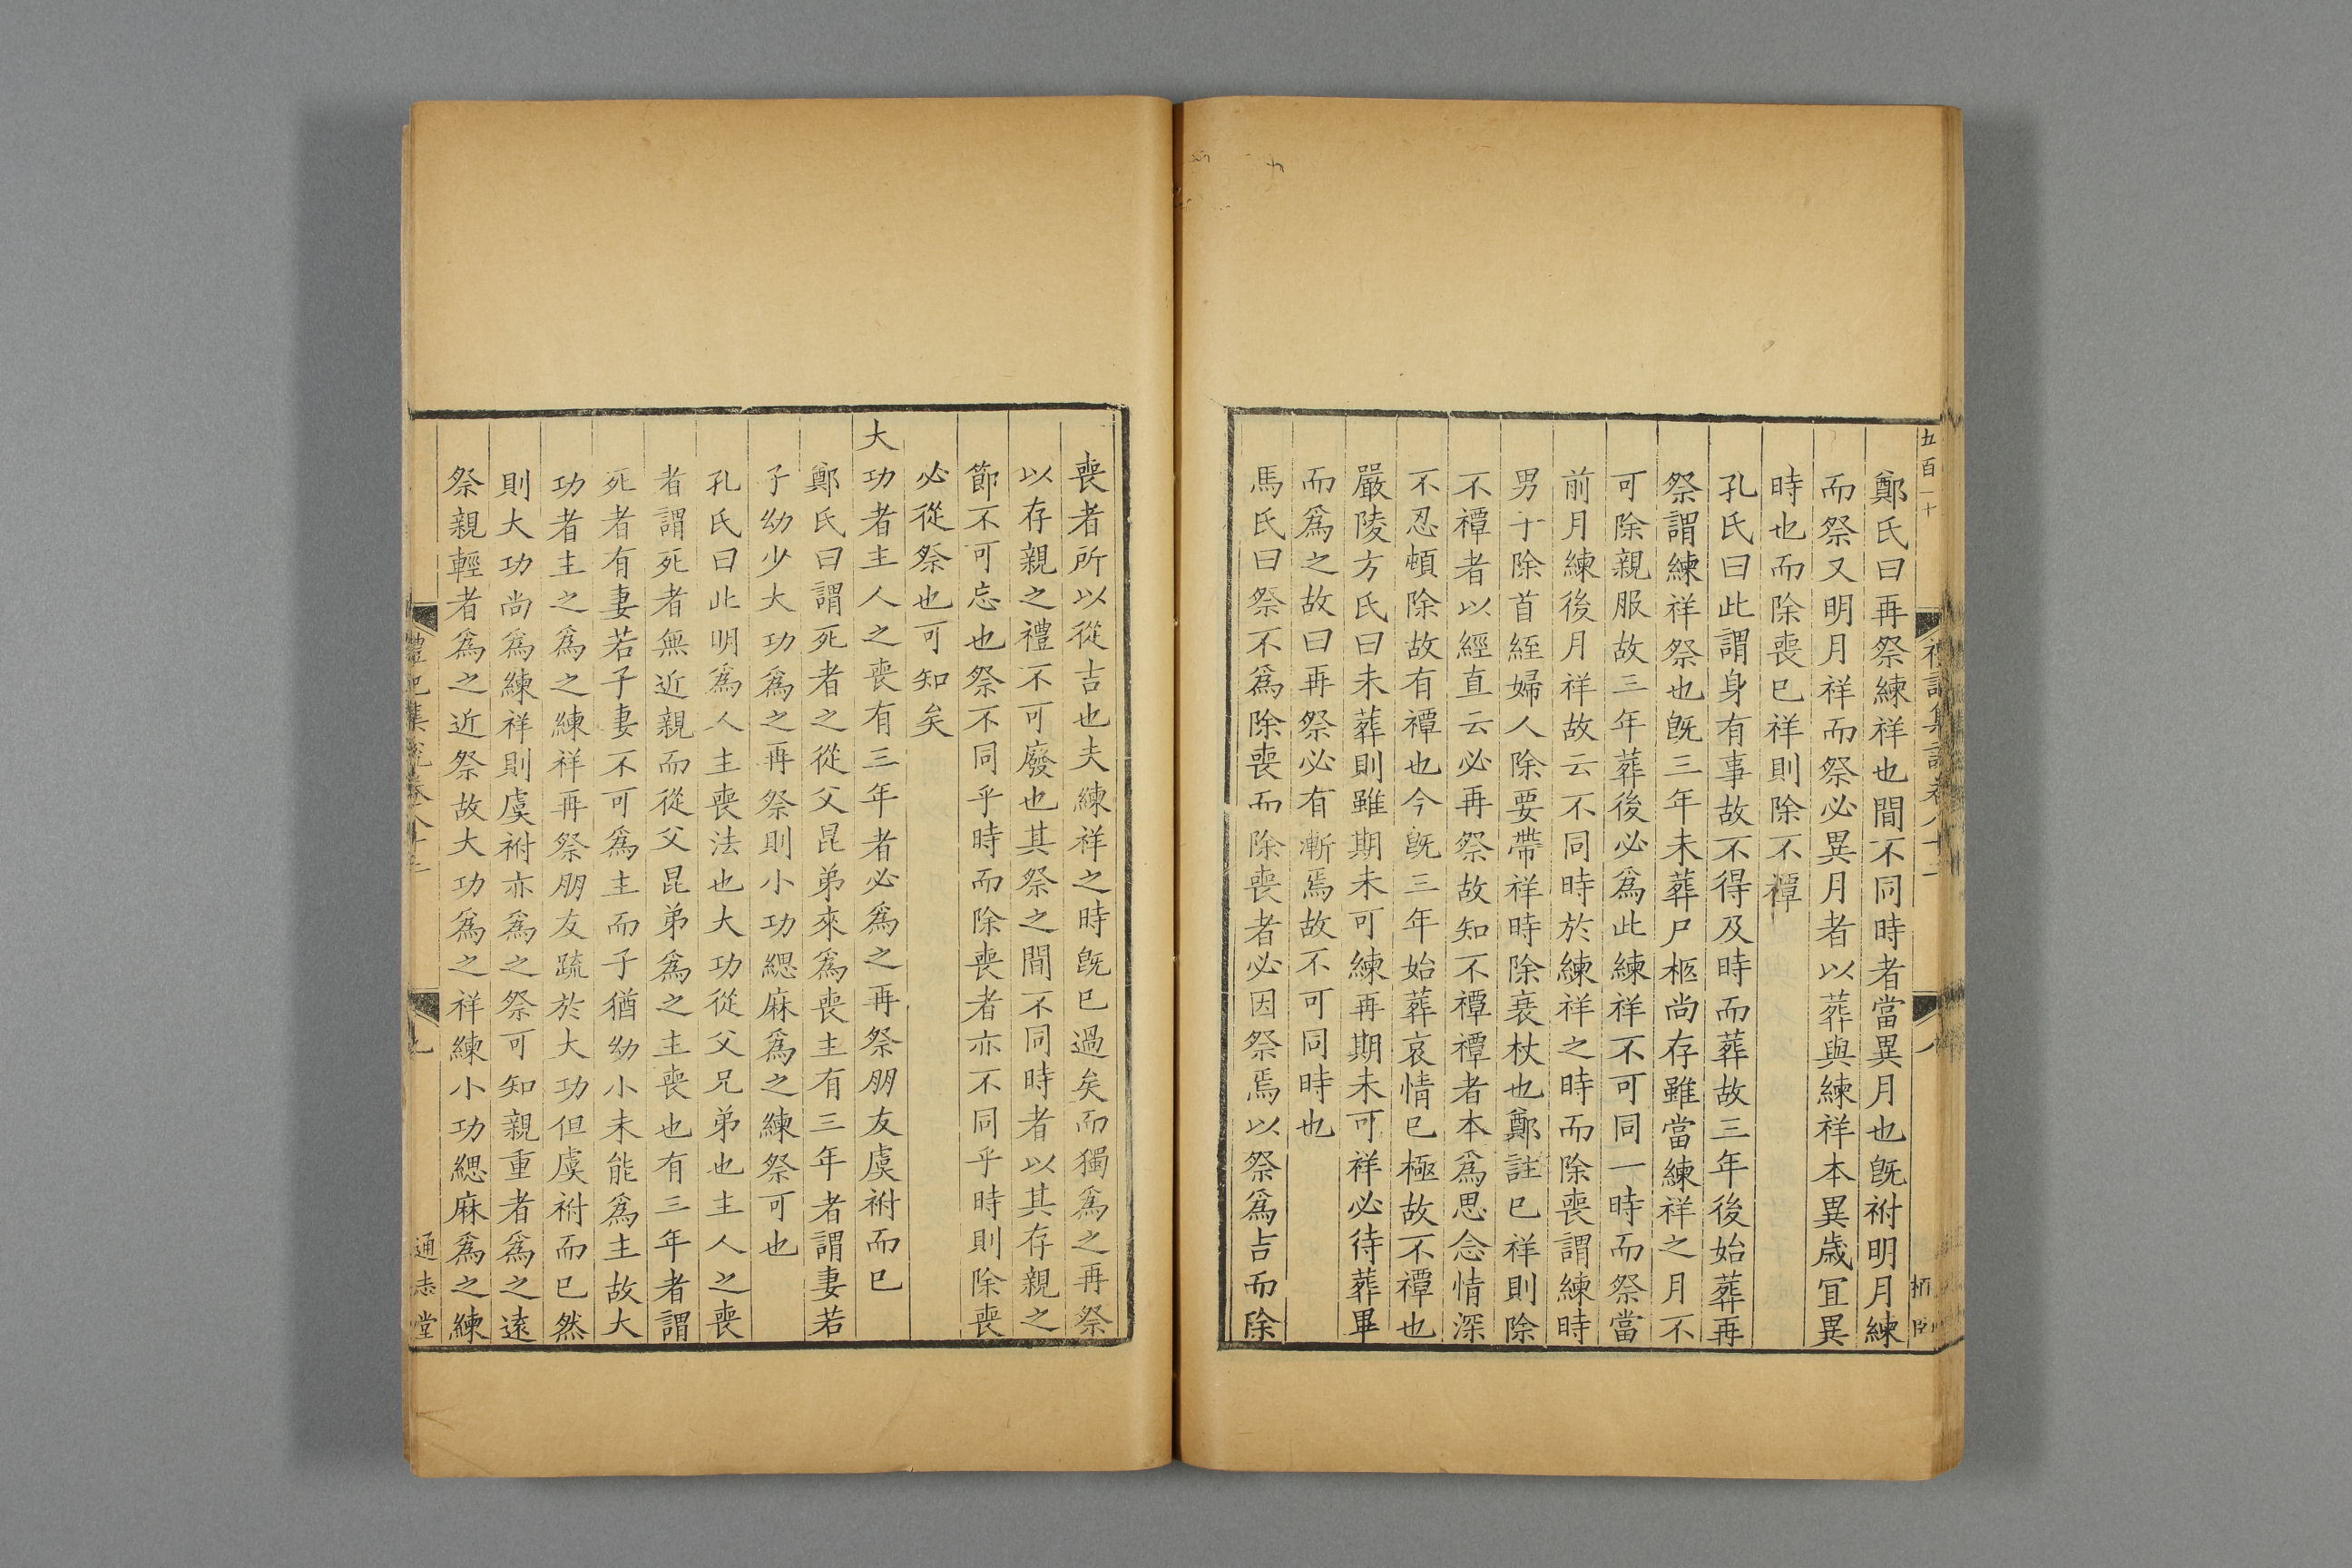 五百一十
鄭氏曰再祭練祥也間不同時者當異月也旣祔明月練
而祭又明月祥而祭必異月者以葬與練祥本異歲宜異
時也而除喪已祥則除不禫
孔氏曰此謂身有事故不得及時而葬故三年後始葬再
祭謂練祥祭也旣三年未葬尸柩尚存雖當練祥之月不
可除親服故三年葬後必爲此練祥不可同一時而祭當
前月練後月祥故云不同時於練祥之時而除喪謂練時
男子除首絰婦人除要帶祥時除衰杖也鄭註已祥則除
不禫者以經直云必再祭故知不禫禫者本爲思念情深
不忍頓除故有禫也今旣三年始葬哀情已極故不禫也
嚴陵方氏曰未葬則雖期未可練再期未可祥必待葬畢
而爲之故曰再祭必有漸焉故不可同時也
馬氏曰祭不爲除喪而除喪者必因祭焉以祭爲吉而除
喪者所以從吉也夫練祥之時旣已過矣而獨爲之再祭
以存親之禮不可廢也其祭之間不同時者以其存親之
節不可忘也祭不同乎時而除喪者亦不同乎時則除喪
必從祭也可知矣
大功者主人之喪有三年者必爲之再祭朋友虞祔而已
鄭氏曰謂死者之從父昆弟來爲喪主有三年者謂妻若
子幼少大功爲之再祭則小功緦麻爲之練祭可也
孔氏曰此明爲人主喪法也大功從父兄弟也主人之喪
者謂死者無近親而從父昆弟爲之主喪也有三年者謂
死者有妻若子妻不可爲主而子猶幼小未能爲主故大
功者主之爲之練祥再祭朋友疏於大功但虞祔而已然
則大功尚爲練祥則虞祔亦爲之祭可知親重者爲之遠
祭親輕者爲之近祭故大功爲之祥練小功緦麻爲之練
禮記集說卷八十
通志堂